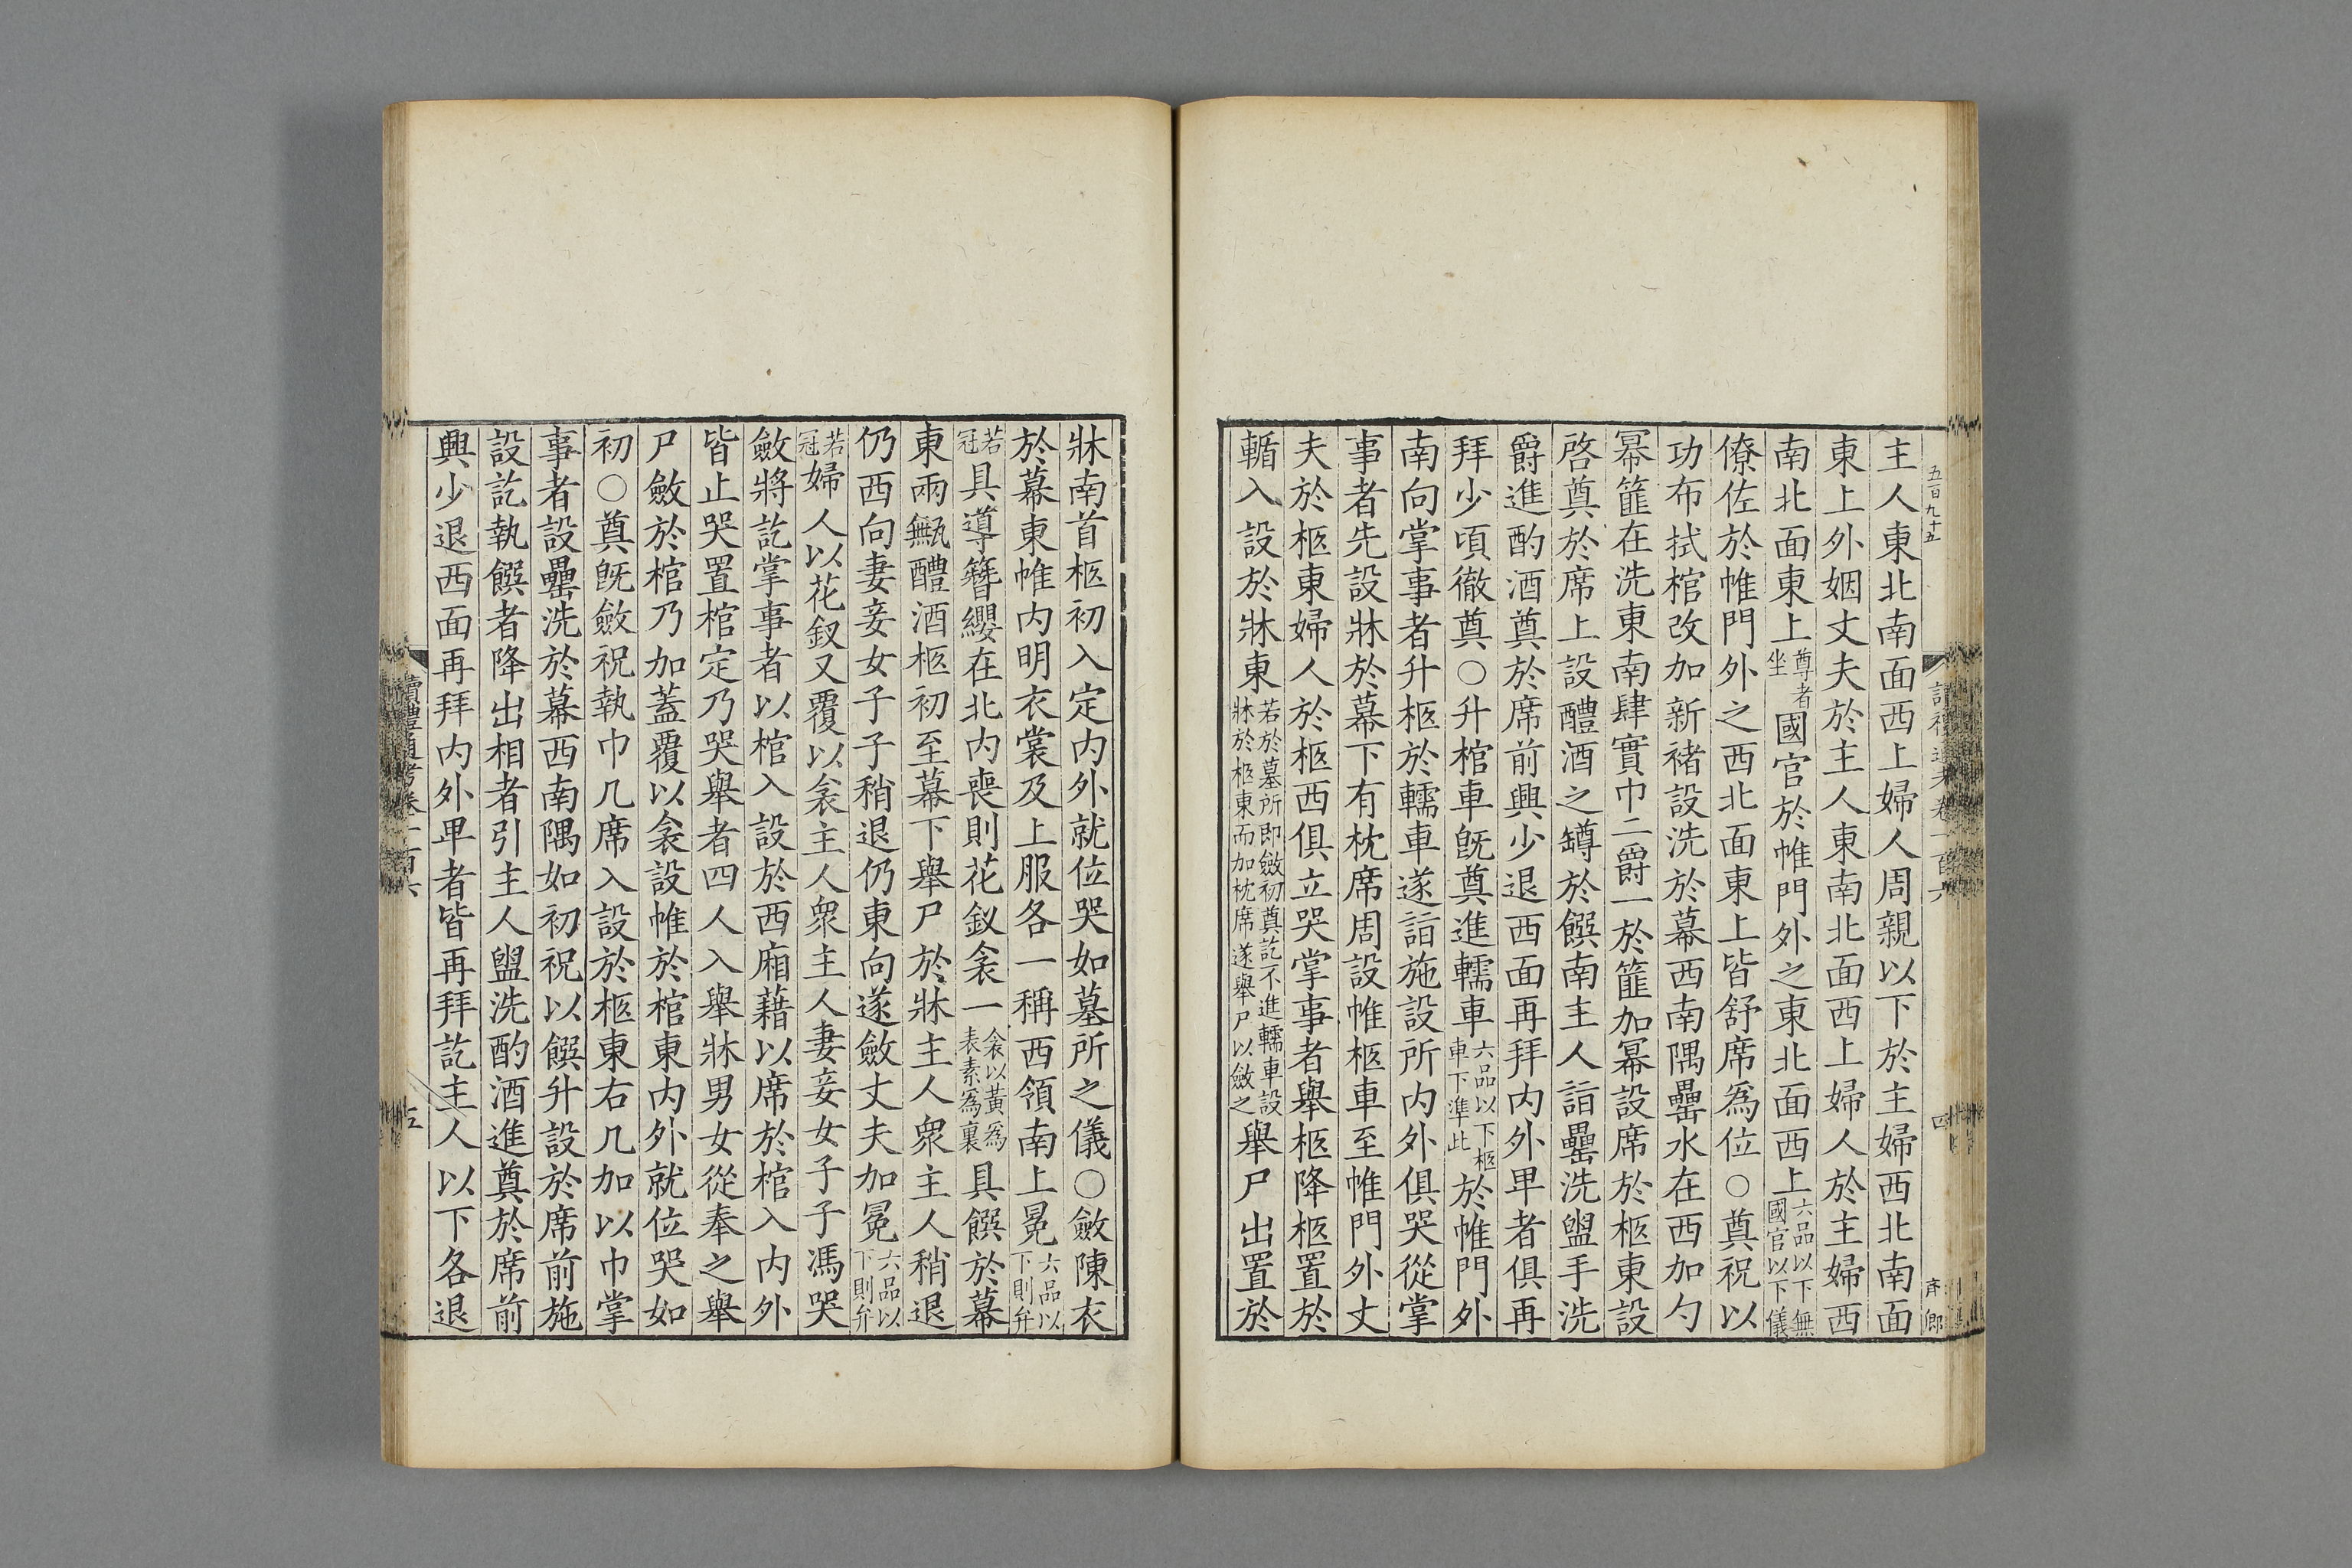 五百九十五
主人東北南面西上婦人周親以下於主婦西北南面
東上外姻丈夫於主人東南北面西上婦人於主婦西
南北面東上尊者坐國官於帷門外之東北面西上六品以下無國官以下儀
僚佐於帷門外之西北面東上皆舒席爲位○奠祝以
功布拭棺改加新褚設洗於幕西南隅罍水在西加勺
冪篚在洗東南肆實巾二爵一於篚加冪設席於柩東設
啓奠於席上設醴酒之罇於饌南主人詣罍洗盥手洗
爵進酌酒奠於席前興少退西面再拜内外卑者俱再
拜少頃徹奠○升棺車旣奠進轜車六品以下柩車下準此於帷門外
南向掌事者升柩於轜車遂詣施設所内外俱哭從掌
事者先設牀於幕下有枕席周設帷柩車至帷門外丈
夫於柩東婦人於柩西俱立哭掌事者舉柩降柩置於
輴入設於牀東若於墓所即斂初奠訖不進轜車設牀於柩東而加枕席遂舉尸以斂之舉尸出置於
四
牀南首柩初入定内外就位哭如墓所之儀○斂陳衣
於幕東帷内明衣裳及上服各一稱西領南上冕六品以下則弁
若冠具導簪纓在北内喪則花釵衾一衾以黃爲表素爲裏具饌於幕
東兩甒醴酒柩初至幕下舉尸於牀主人衆主人稍退
仍西向妻妾女子子稍退仍東向遂斂丈夫加冕六品以下則弁
若冠婦人以花釵又覆以衾主人衆主人妻妾女子子馮哭
斂將訖掌事者以棺入設於西廂藉以席於棺入内外
皆止哭置棺定乃哭舉者四人入舉牀男女從奉之舉
尸斂於棺乃加蓋覆以衾設帷於棺東内外就位哭如
初○奠旣斂祝執巾几席入設於柩東右几加以巾掌
事者設罍洗於幕西南隅如初祝以饌升設於席前施
設訖執饌者降出相者引主人盥洗酌酒進奠於席前
興少退西面再拜内外卑者皆再拜訖主人以下各退
讀禮通考卷一百六
五